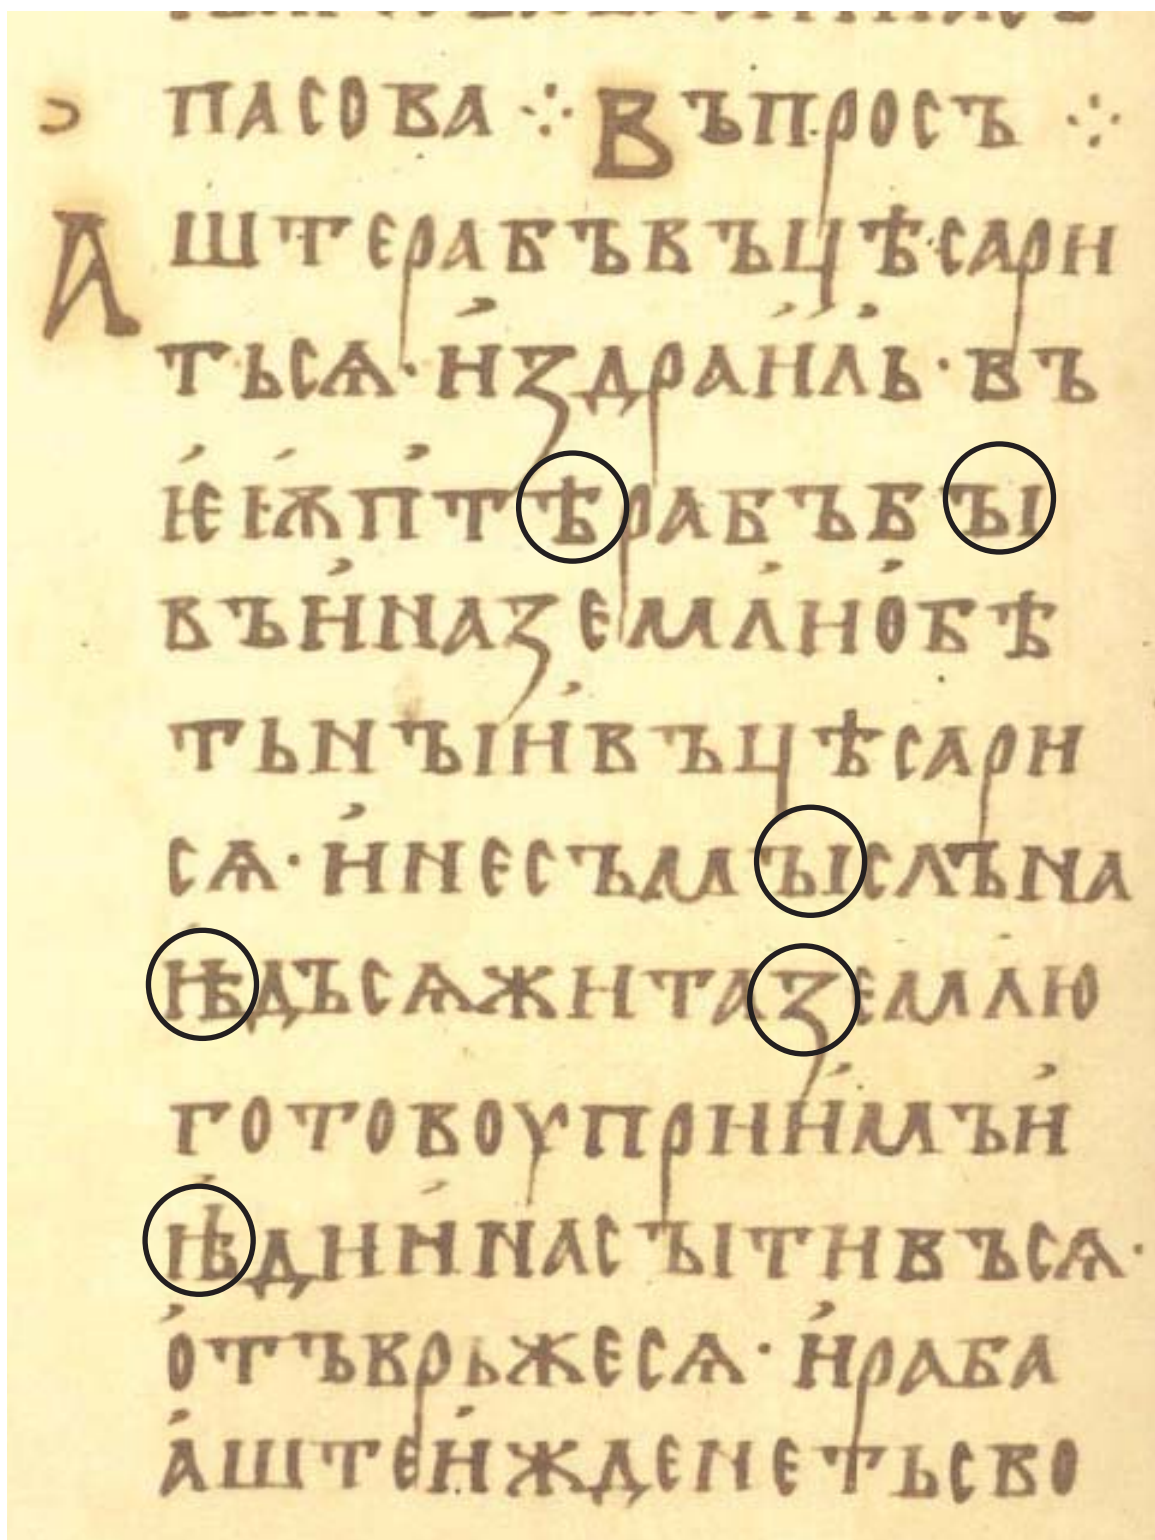 пасова ⁘ Въпросъ ⁘
Аште рабъ въцѣсари
тьсѧ · и҆здраи҆л҆ь · въ
ѥ҆гѵ҆п҆тѣ рабъ бꙑ
въ и҆ на земл҆и о҆бѣ
тьнꙑи҆ въцѣсари
сѧ · и҆ не съмꙑслъ на
ꙗ҆дъ сѧжита землю
готовоу приимъ и҆
ꙗ҆дии҆ насꙑтивъ сѧ ·
о҆тъврьже сѧ · и҆ раба
а҆ште и҆жденетъ сво